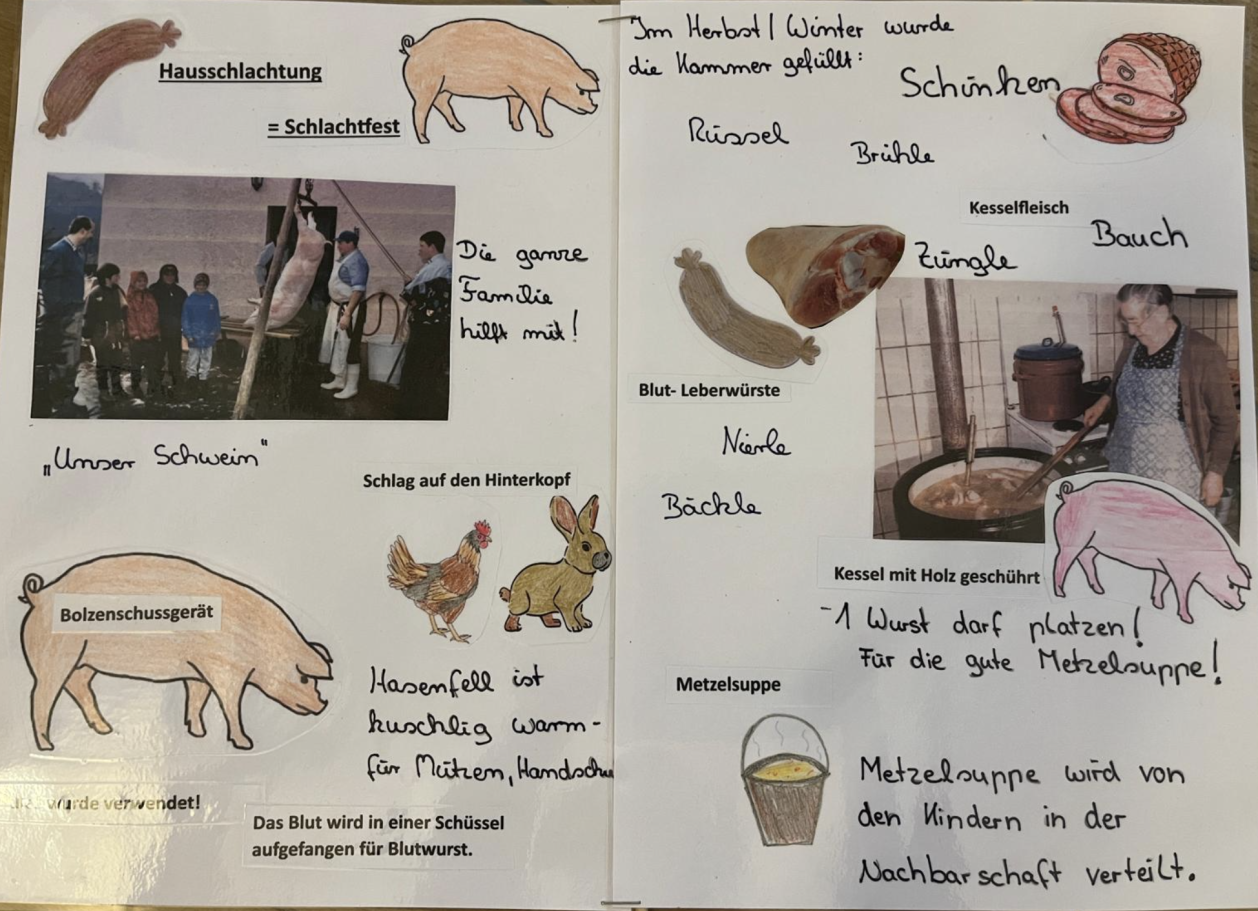 Hausschlachtung
= Schlachtfest
Die ganze
Familie
hilft mit!
„Unser Schwein"
Schlag auf den Hinterkopf
Bolzenschussgerät
Hasenfell ist
kuschlig warm-
für Mützen, Handschu
wurde verwendet!
Das Blut wird in einer Schüssel
aufgefangen für Blutwurst.
Im Herbst/Winter wurde
die Kammer gefüllt:
Schinken
Rüssel
Brühle
Kesselfleisch
Bauch
Züngle
Blut- Leberwürste
Nierle
Bäckle
Kessel mit Holz geschührt
-1 Wurst darf platzen!
Für die gute Metzelsuppe!
Metzelsuppe
Metzelsuppe wird von
den Kindern in der
Nachbarschaft verteilt.